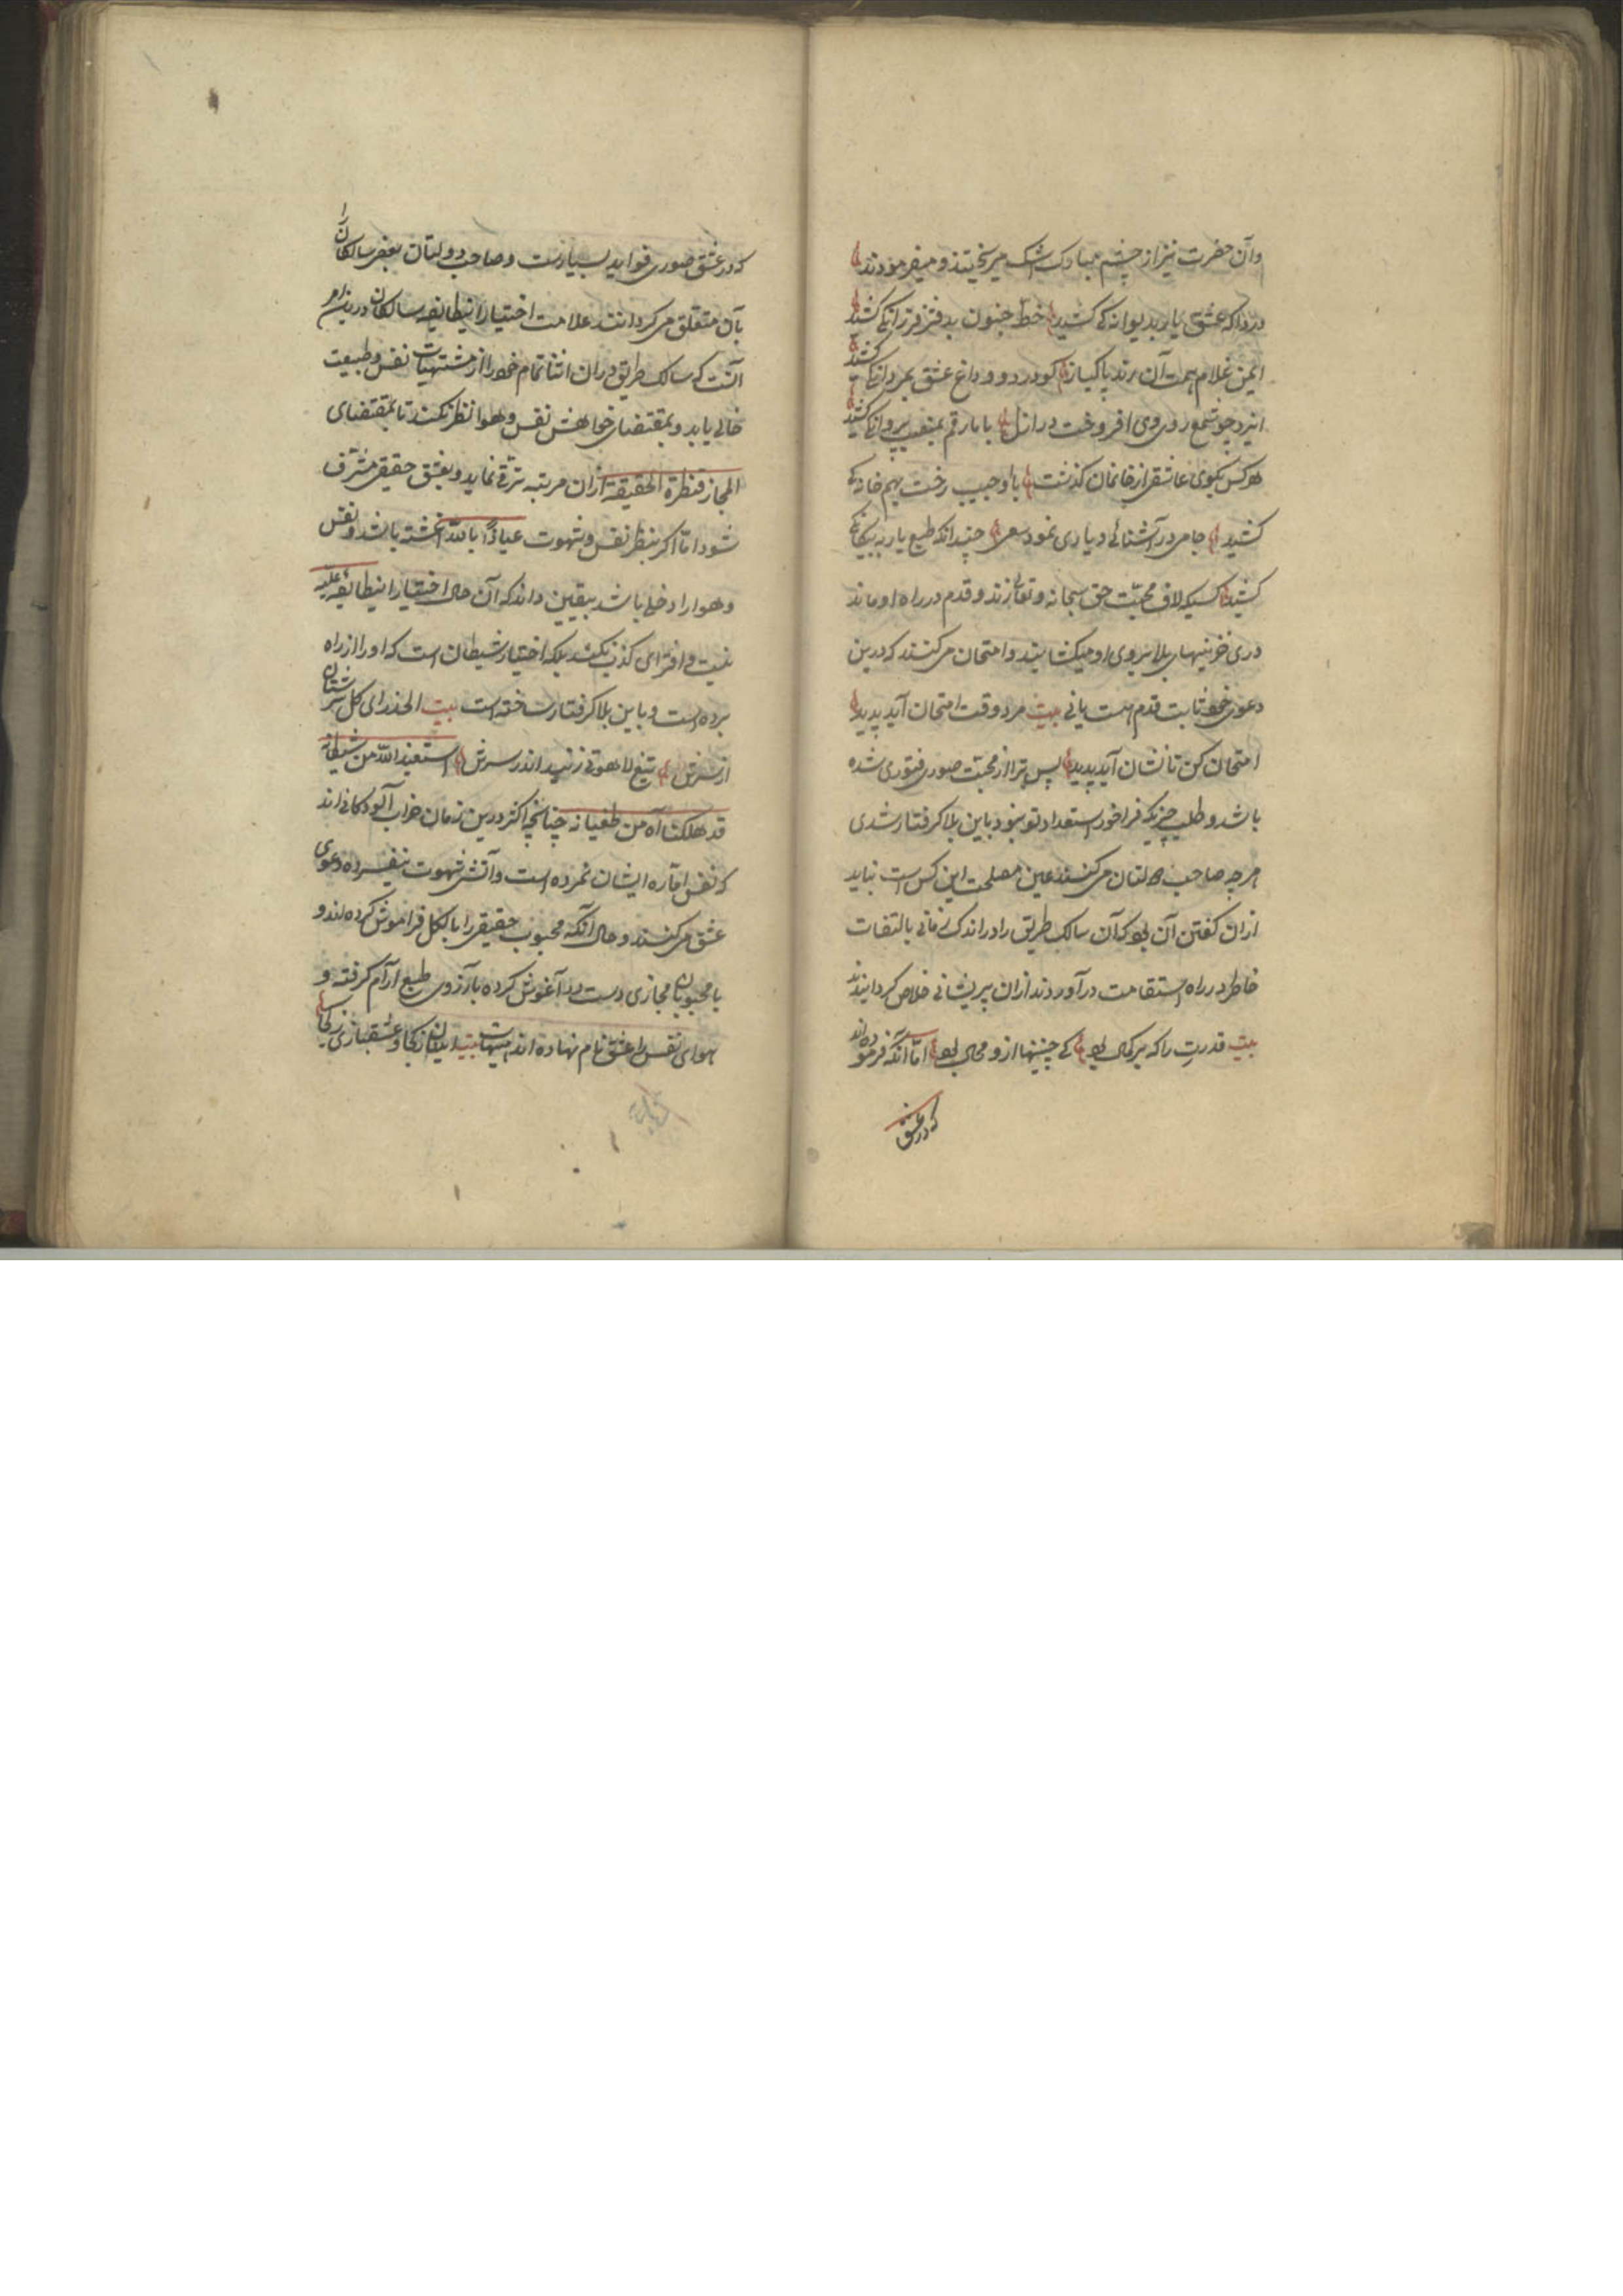 وآن حضرت نیز از چشم مبارک اشک میریختند و میفرمودند
دردا که عشق یار بدیوانه کی کشید خط جنون بدفتر فرزانه کی کشید
من غلام همت آن رند پاکباز کو درد و داغ عشق بمردانه کی کشید
ایزد چو شمع روی وی افروخت در ازل با ما رقم بمنصب پروانه کی کشید
هر کس بکوی عاشقی از خانمان گذشت با او حبیب رخت بهم خانه کی
کشید جامی در آشنائی و یاری نمود سعی چندانکه طبع یار به بیگانه کی
کشید کسیکه لاف محبّت حق سبحانه و تعالی زند و قدم در راه او ماند
دری خزینهای بلا بروی او میکشایند و امتحان می کنند که درین
دعوی خود ثابت قدم هست یا نی بیت مرد وقت امتحان آید پدید
امتحان کن تا نشان آید پدید پس ترا از محبّت صوری فتوری شده
باشد و طلب چیزیکه فراخور استعداد تو نبود باین بلا گرفتار شدی
هر چه صاحب دولتان می کنند عین مصلحت این کس است نباید
ازان گفتن آن بود که آن سالک طریق را در اندک زمانی بالتفات
خاطر در راه استقامت در آوردند ازان پریشانی خلاص گردانیدند
بیت قدرت را که بر کمال بود کی چنینها ازو محال بود امّا آنکه فرموده اند
که در عشق
که در عشق صوری فواید بسیارست و صاحب دولتان بعضی سالکان را
بآن متعلق می گردانند علامت اختیار این طایفه سالکان درین امر
آنست که سالک طریق دران اثنا تمام خود را از مشتهیات نفس و طبیعت
خالی یابد و بمقتضای خواهش نفس و هوا نظر نکند تا بمقتضای
المجاز قنطرة الحقیقة ازان مرتبه ترقّی نماید و بعشق حقیقی مشرّف
شود امّا اگر بنظر نفس و شهوت عیاذاً بالله آغشته باشد و نفس
و هوا را دخلی باشد بیقین داند که آن حال اختیار این طایفه علیه
نیست و افترای کذب نکند بلکه اختیار شیطان است که او را از راه
برده است و باین بلا گرفتار ساخته است بیت الحذر ای کل شر
از شرش تیغ لاهوتی زنید اندر سرش استعیذ الله من شیطانه
قد هلکنا آه من طغیانه چنانچه اکثر درین زمان خراب آلودکانی اند
که نفس امّاره ایشان نمرده است و آتش شهوت نیفسرده دعوی
عشق می کنند و حال آنکه محبوب حقیقی را بالکل فراموش کرده اند و
با محبوبان مجازی دست در آغوش کرده بآرزوی طبع آرام گرفته و
هوای نفس را عشق نام نهاده اند هیهات بیت اینان ز کجا و عشقبازی ز کجا